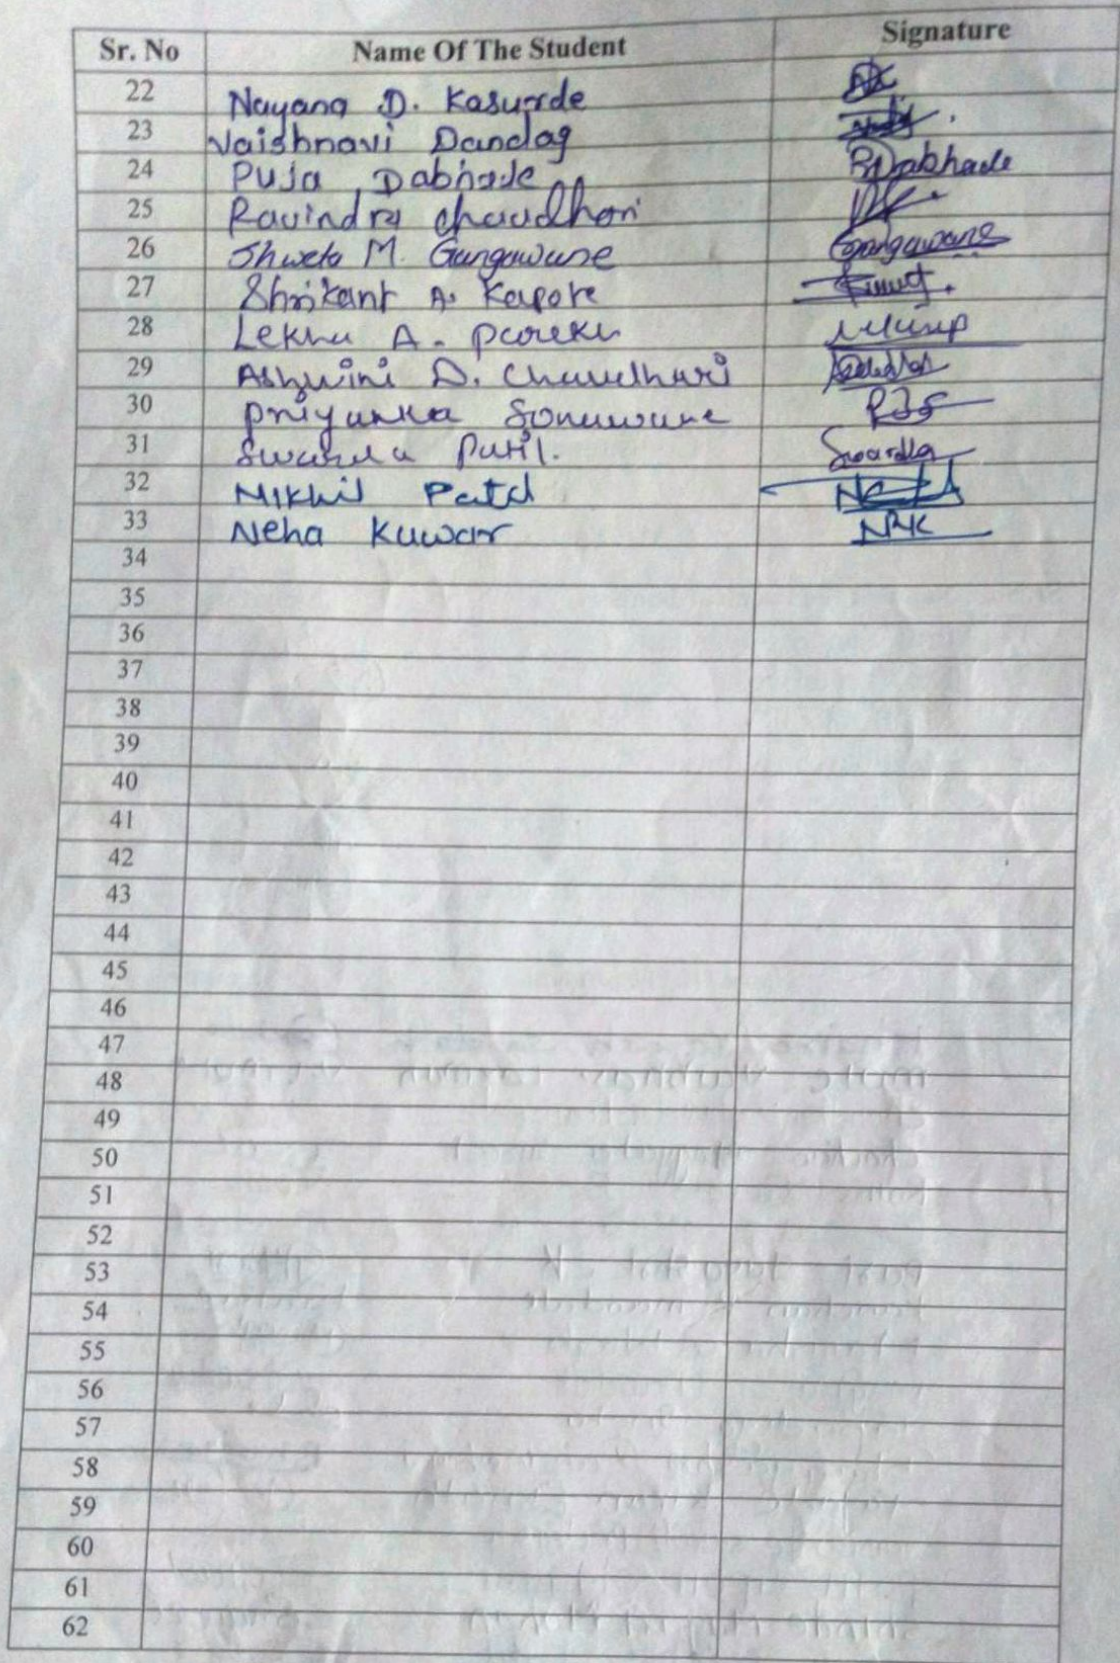 Sr. No Name Of The Student Signature
22 Nayana D. Kasurde
23 Vaishnavi Dandag
24 Puja Dabhade PDabhade
25 Ravindra Chaudhari
26 Shweta M. Gangawane Gangawane
27 Shrikant A. Kapote
28 Lekha A. Pareku
29 Ashwini D. Chaudhari
30 Priyanka Sonawane PJS
31 Patil.
32 Nikhil Patil
33 Neha Kuwar NRK
34
35
36
37
38
39
40
41
42
43
44
45
46
47
48
49
50
51
52
53
54
55
56
57
58
59
60
61
62